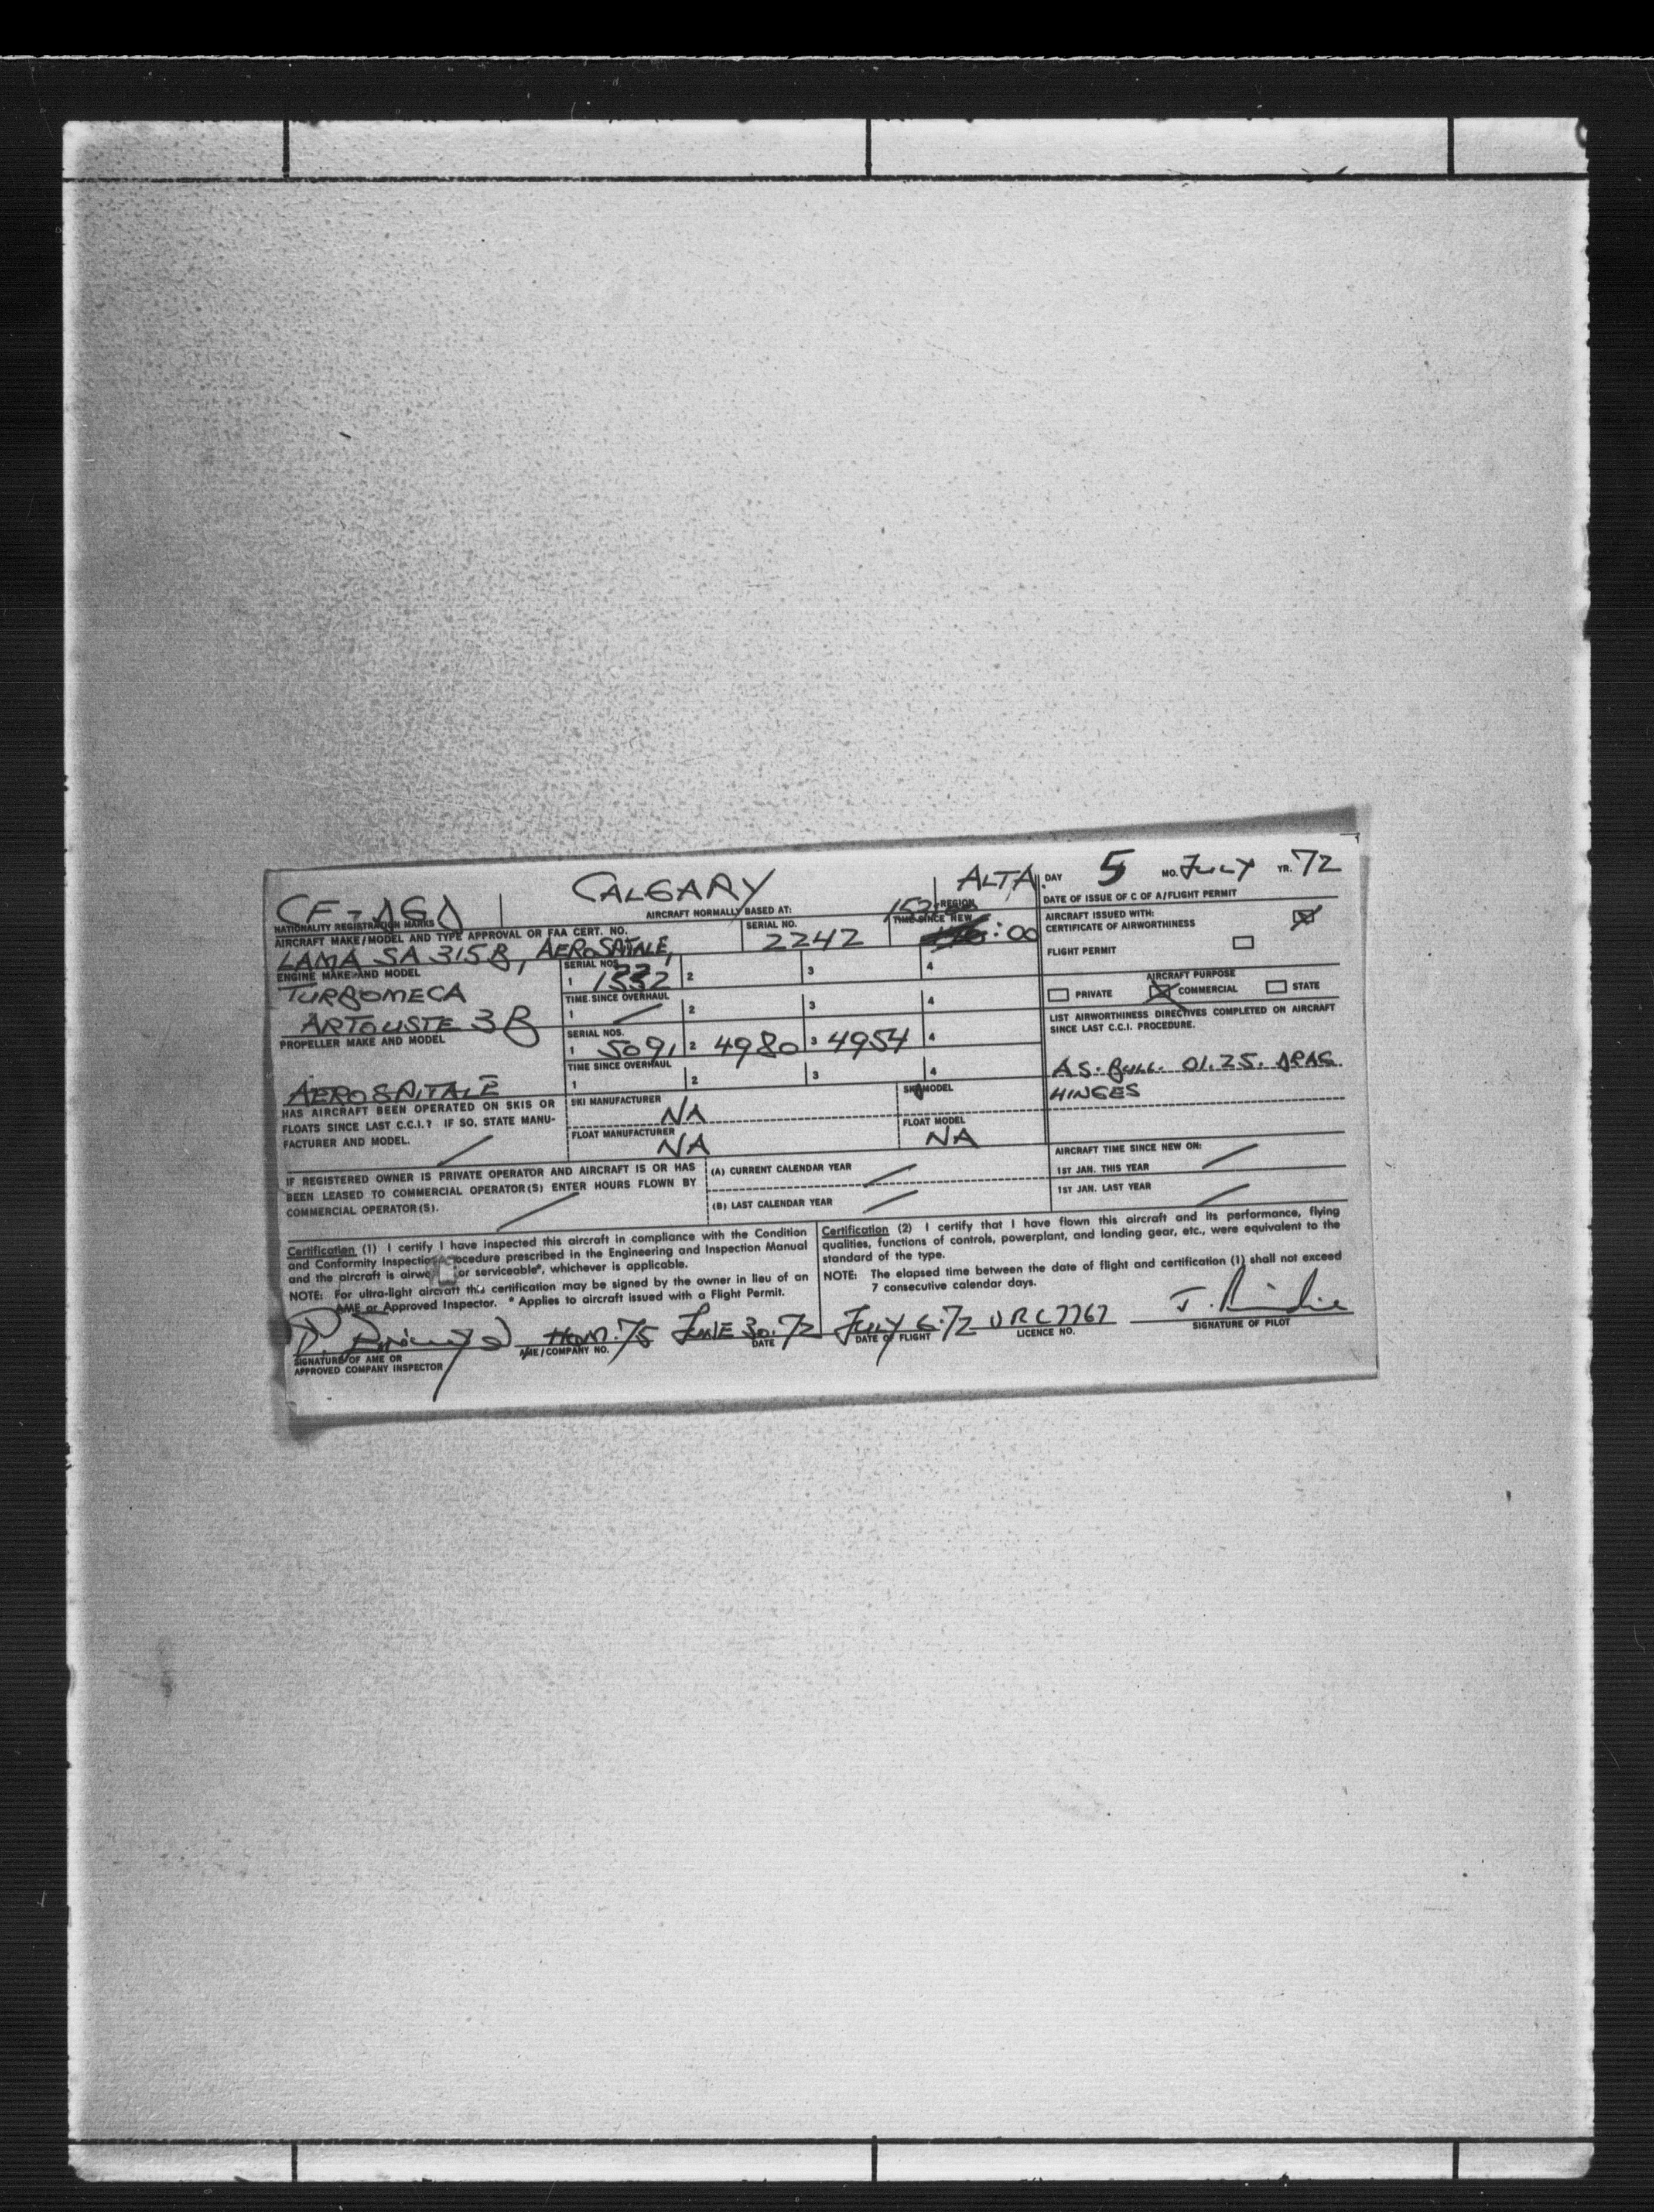 CF-AGA CALGARY ALTA. DAY 5 MO. JULY YR. 72
NATIONALITY REGISTRATION MARKS AIRCRAFT NORMALLY BASED AT: REGION DATE OF ISSUE OF C OF A/FLIGHT PERMIT
AIRCRAFT MAKE/MODEL AND TYPE APPROVAL OR FAA CERT. NO. SERIAL NO. TIME SINCE NEW
LAMA SA 315B, AEROSPITALE, 2242 :00
AIRCRAFT ISSUED WITH:
CERTIFICATE OF AIRWORTHINESS
FLIGHT PERMIT
ENGINE MAKE AND MODEL SERIAL NOS.
1 1332 2 3 4
TURBOMECA
TIME SINCE OVERHAUL
1 / 2 3 4
ARTOUSTE 3B
AIRCRAFT PURPOSE
PRIVATE COMMERCIAL STATE
PROPELLER MAKE AND MODEL SERIAL NOS.
1 5091 2 4980 3 4954 4
TIME SINCE OVERHAUL
1 2 3 4
AEROSPITALE
LIST AIRWORTHINESS DIRECTIVES COMPLETED ON AIRCRAFT
SINCE LAST C.C.I. PROCEDURE.
A.S. BULL. 01.25. DRAG
HINGES
HAS AIRCRAFT BEEN OPERATED ON SKIS OR
FLOATS SINCE LAST C.C.I.? IF SO, STATE MANU-
FACTURER AND MODEL. /
SKI MANUFACTURER SKI MODEL
NA
FLOAT MANUFACTURER FLOAT MODEL
NA NA
AIRCRAFT TIME SINCE NEW ON:
1ST JAN. THIS YEAR /
1ST JAN. LAST YEAR /
IF REGISTERED OWNER IS PRIVATE OPERATOR AND AIRCRAFT IS OR HAS
BEEN LEASED TO COMMERCIAL OPERATOR(S) ENTER HOURS FLOWN BY
COMMERCIAL OPERATOR(S). /
(A) CURRENT CALENDAR YEAR /
(B) LAST CALENDAR YEAR /
Certification (1) I certify I have inspected this aircraft in compliance with the Condition
and Conformity Inspection procedure prescribed in the Engineering and Inspection Manual
and the aircraft is or serviceable*, whichever is applicable.
NOTE: For ultra-light aircraft this certification may be signed by the owner in lieu of an
AME or Approved Inspector. * Applies to aircraft issued with a Flight Permit.
Certification (2) I certify that I have flown this aircraft and its performance, flying
qualities, functions of controls, powerplant, and landing gear, etc., were equivalent to the
standard of the type.
NOTE: The elapsed time between the date of flight and certification (1) shall not exceed
7 consecutive calendar days.
75 JUNE 30.72 JULY 6.72
SIGNATURE OF AME OR
APPROVED COMPANY INSPECTOR
AME/COMPANY NO. DATE DATE OF FLIGHT LICENCE NO. SIGNATURE OF PILOT